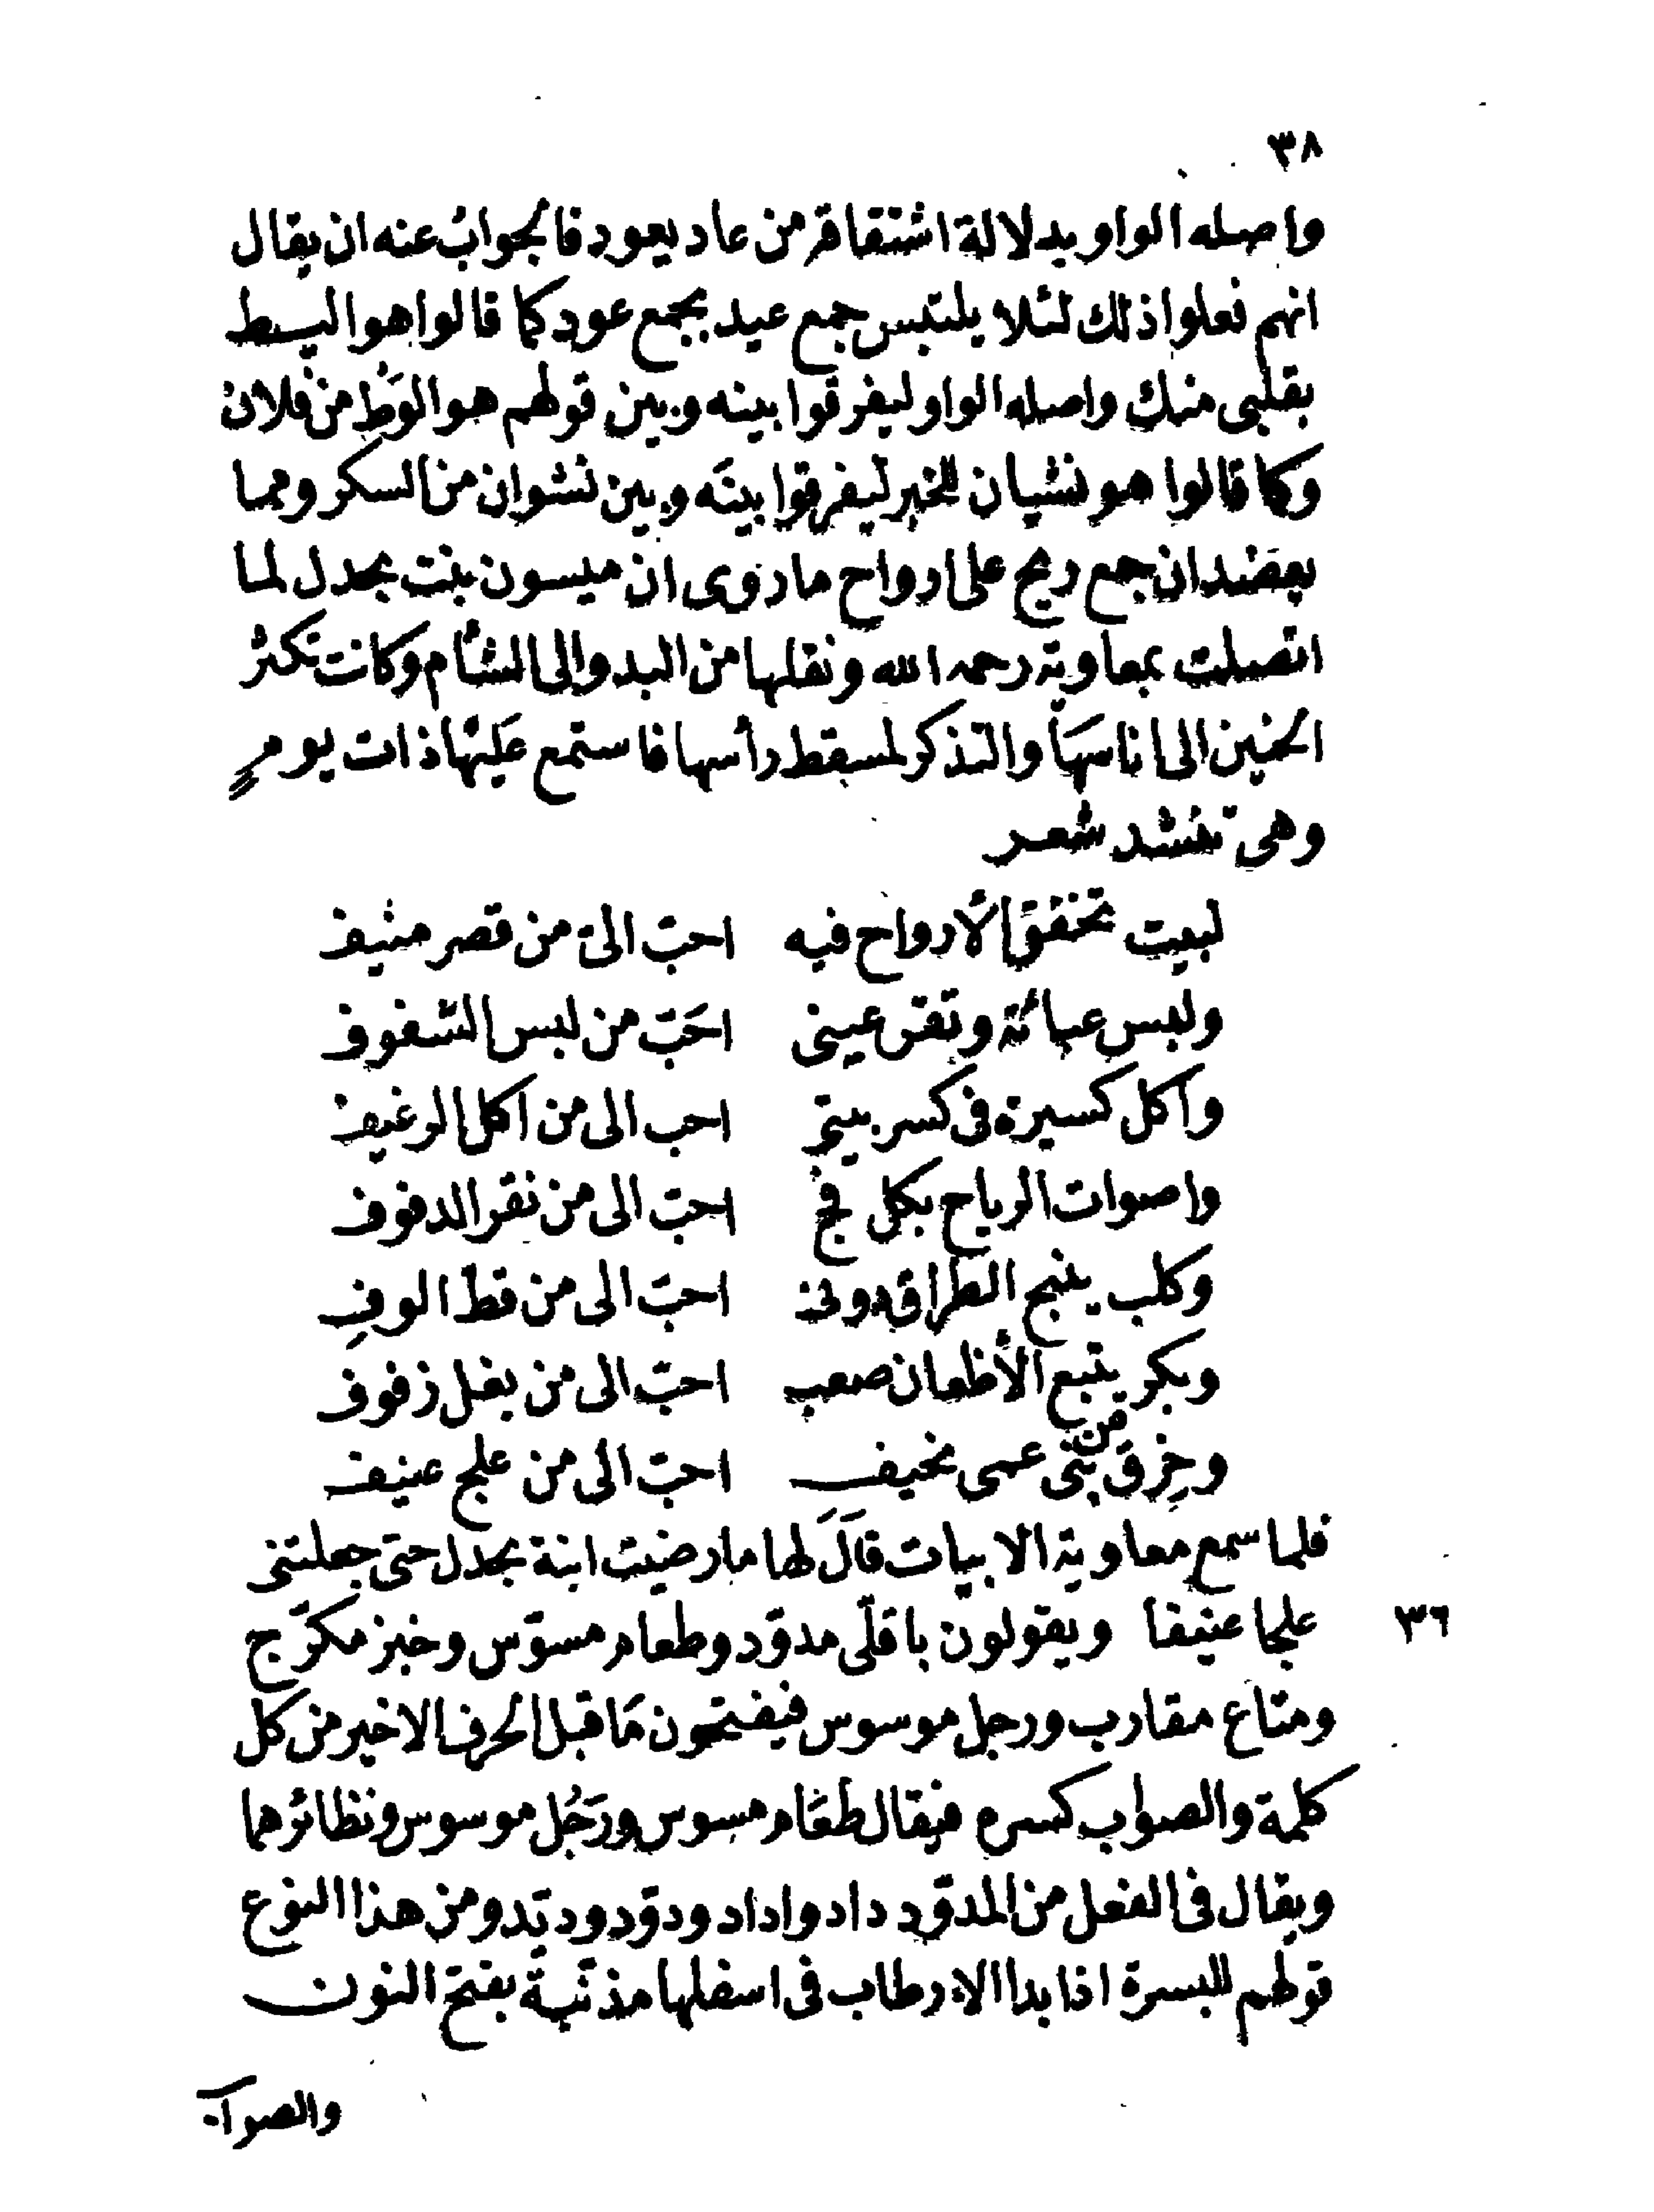 ٣٨
واصله الواو بدلالة اشتقاقه من عاد يعود فالجواب عنه ان يقال
انهم فعلوا ذلك لئلا يلتبس جمع عيد بجمع عود كما قالوا هو اليسط
بقلبى منك واصله الواو ليفرقوا بينه وبين قولهم هو الوط من فلان
وكما قالوا هو نشيان للخبر ليفرقوا بينه وبين نشوان من السكر ومما
يعضد ان جمع ريح على ارواح ما روى ان ميسون بنت بحدل لما
اتصلت بمعاوية رحمه الله ونقلها من البدو الى الشأم وكانت تكثر
الحنين الى اناسها والتذكر لمسقط رأسها فاستمع عليها ذات يومٍ
وهى تنشد شعر
لبيت تخفق الأرواح فيه احبّ الىّ من قصر منيف
ولبس عبائة وتقر عينى احَبّ من لبس الشفوف
وأكل كسيرة فى كسر بيتى احب الى من اكل الرغيف
واصوات الرياح بكل فج احبّ الى من نقر الدفوف
وكلب ينبح الطراق دونى احبّ الى من قطّ الوفِ
وبكر يتبع الأظعان صعب احبّ الى من بغل زفوف
وخِرق من بنى عمى نحيف احبّ الى من علج عنيف
فلما سمع معاوية الابيات قالَ لها ما رضيت ابنة بحدل حتى جعلتنى
٣٦ علجا عنيفا ويقولون باقلّى مدوّد وطعام مسوّس وخبز مكرّج
ومتاع مقارب ورجل موسوس فيفتحون مَا قبل الحرف الاخير من كل
كلمة والصواب كسره فيقال طعَام مسوس ورَجُل موسوس ونظائرهما
ويقال فى الفعل من المدوّد داد واداد ودوّد وديّد ومن هذا النوع
قولهم للبسرة اذا بدا الارطاب فى اسفلها مذنّبة بفتح النون
والصواب